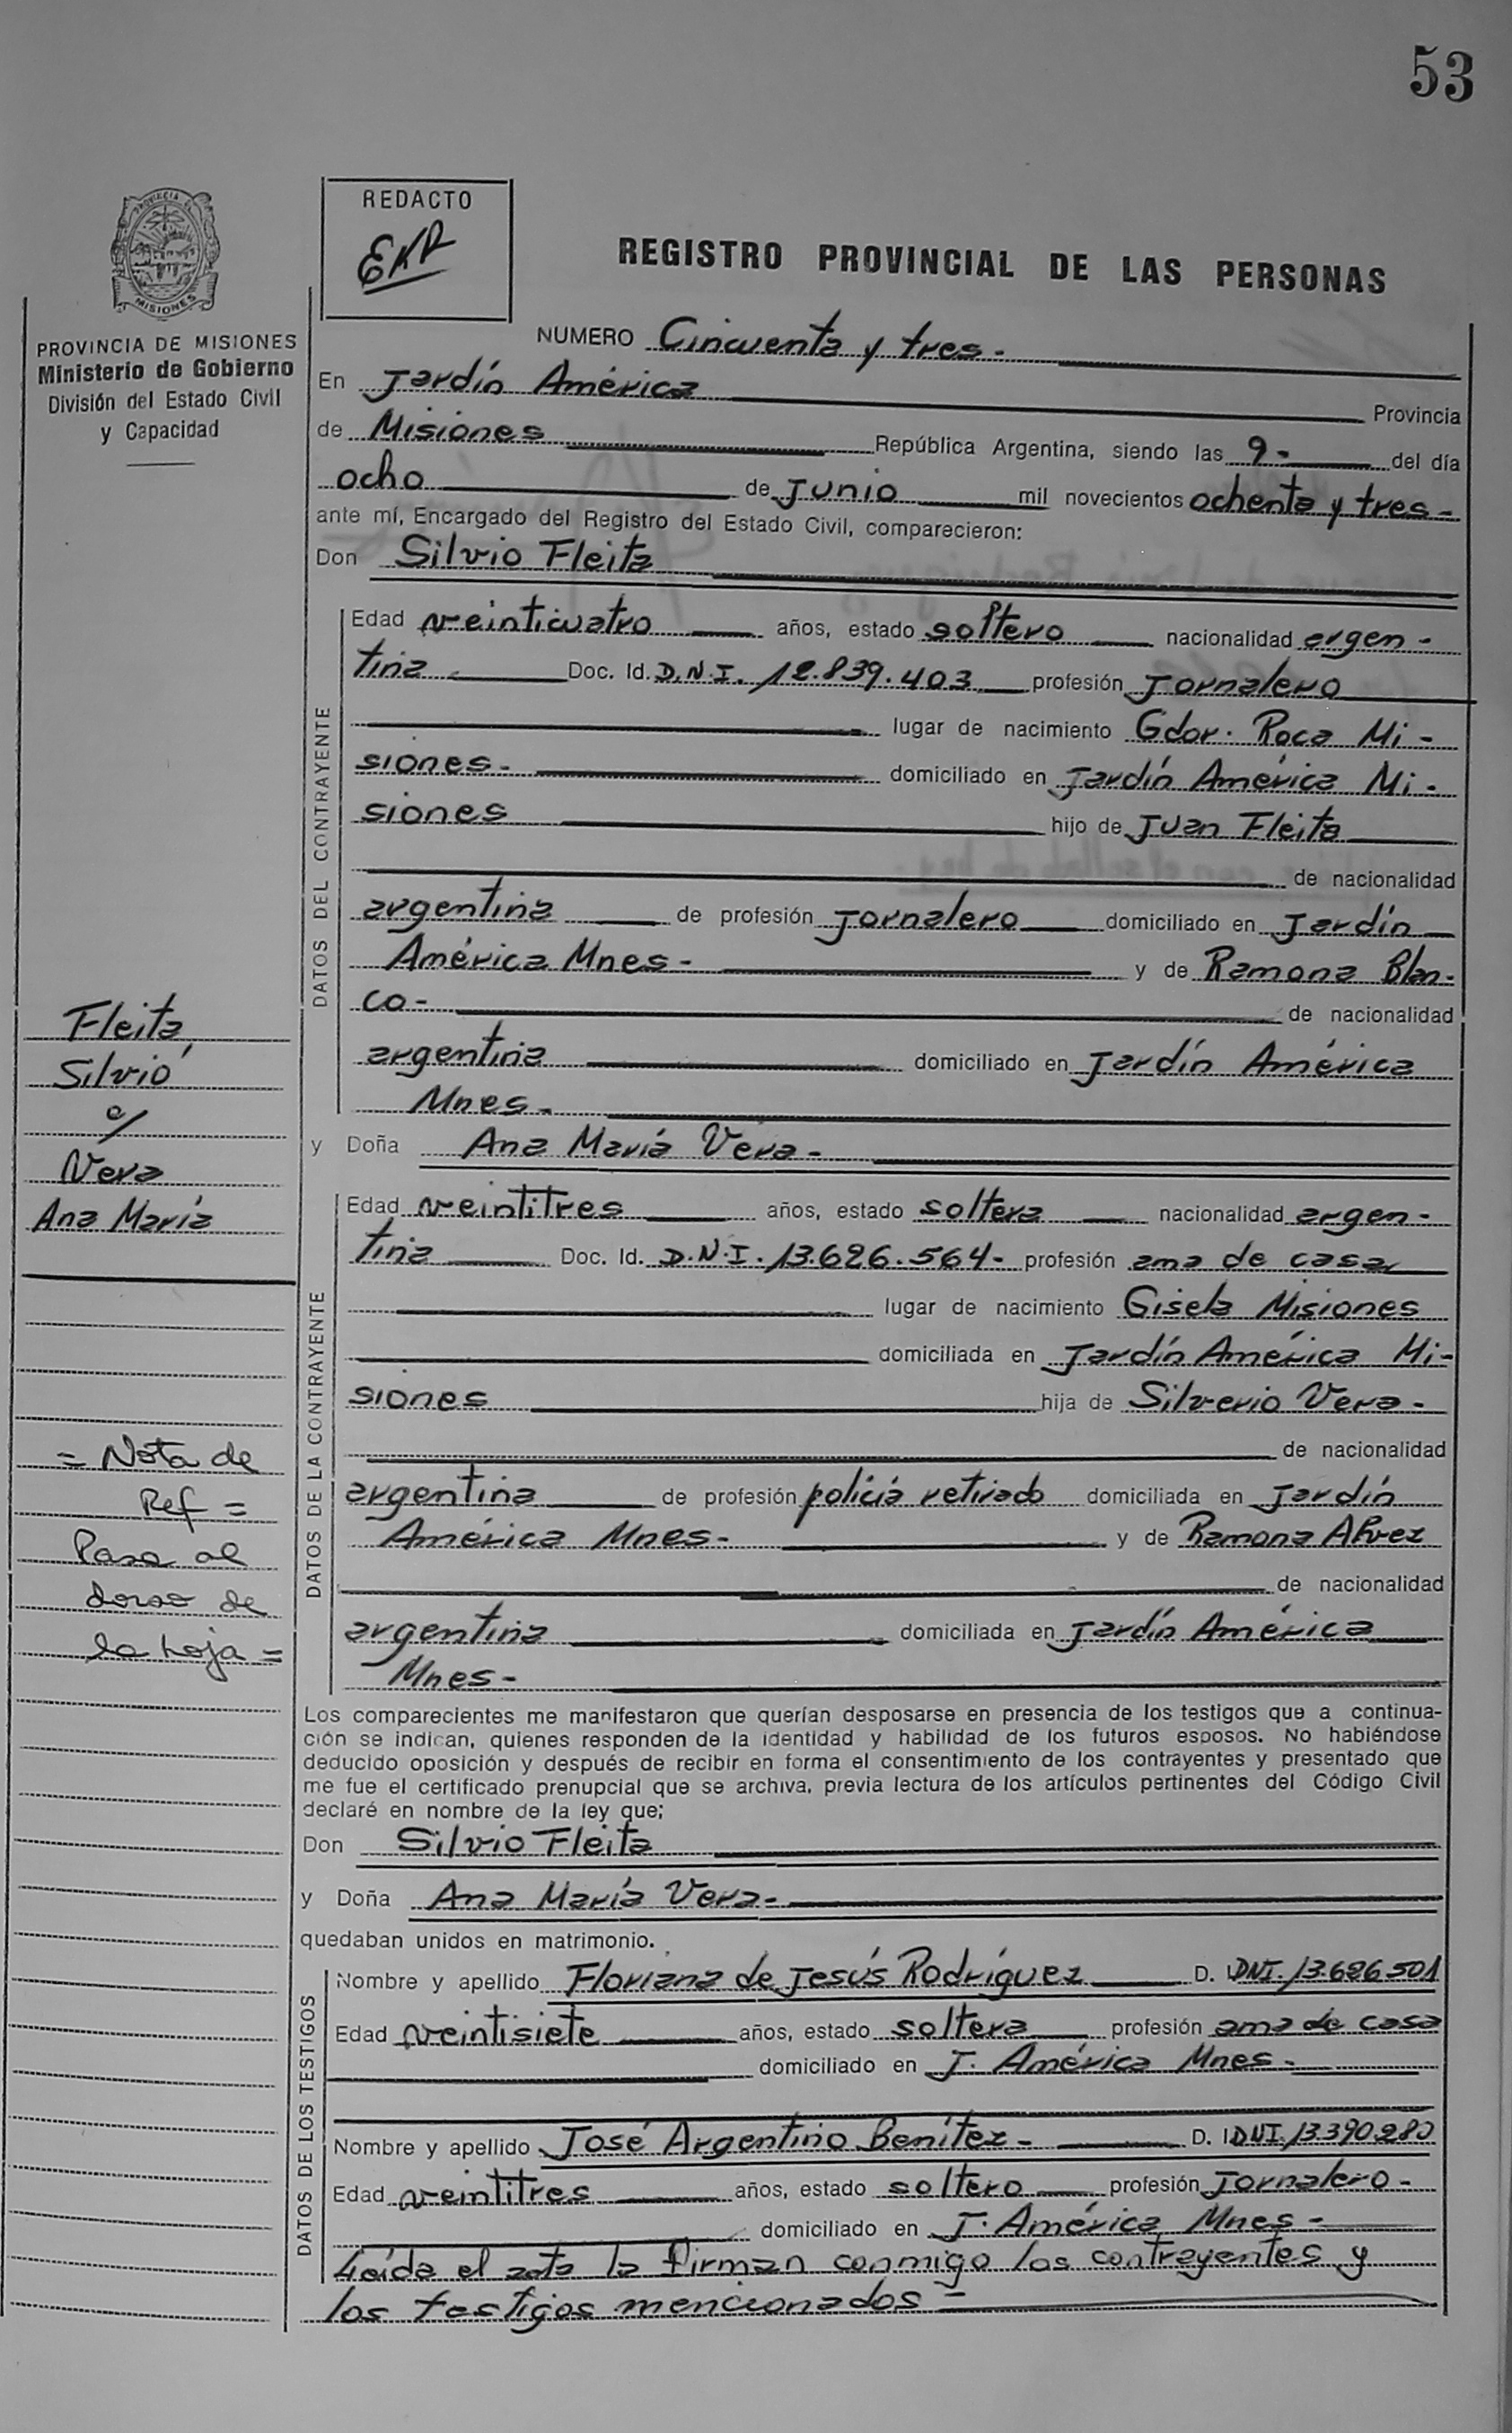 53
REDACTO
EKR
REGISTRO PROVINCIAL DE LAS PERSONAS
PROVINCIA DE MISIONES
Ministerio de Gobierno
División del Estado Civil
y Capacidad
NUMERO Cincuenta y tres-
En Jardín América Provincia
de Misiones República Argentina, siendo las 9- del día
ocho de Junio mil novecientos ochenta y tres-
ante mí, Encargado del Registro del Estado Civil, comparecieron:
Don Silvio Fleita
DATOS DEL CONTRAYENTE
Edad veinticuatro años, estado soltero nacionalidad argen-
tina Doc. Id. D.N.I. 12.839.403 profesión Jornalero
lugar de nacimiento Gdor. Roca Mi-
siones- domiciliado en Jardín América Mi-
siones hijo de Juan Fleita
de nacionalidad
argentina de profesión Jornalero domiciliado en Jardín
América Mnes- y de Ramona Blan-
co- de nacionalidad
argentina domiciliado en Jardín América
Mnes-
y Doña Ana María Vera-
Fleita,
Silvio
c/
Vera
Ana María
DATOS DE LA CONTRAYENTE
Edad veintitres años, estado soltera nacionalidad argen-
tina Doc. Id. D.N.I. 13.626.564- profesión ama de casa
lugar de nacimiento Gisela Misiones
domiciliada en Jardín América Mi-
siones hija de Silverio Vera-
de nacionalidad
argentina de profesión policía retirado domiciliada en Jardín
América Mnes- y de Ramona Alvez
de nacionalidad
argentina domiciliada en Jardín América
Mnes-
= Nota de
Ref =
Pasa al
dorso de
la hoja =
Los comparecientes me manifestaron que querían desposarse en presencia de los testigos que a continua-
ción se indican, quienes responden de la identidad y habilidad de los futuros esposos. No habiéndose
deducido oposición y después de recibir en forma el consentimiento de los contrayentes y presentado que
me fue el certificado prenupcial que se archiva, previa lectura de los artículos pertinentes del Código Civil
declaré en nombre de la ley que;
Don Silvio Fleita
y Doña Ana María Vera-
quedaban unidos en matrimonio.
DATOS DE LOS TESTIGOS
Nombre y apellido Floriana de Jesús Rodríguez D. I. DNI. 13.626.501
Edad veintisiete años, estado soltera profesión ama de casa
domiciliado en J. América Mnes-
Nombre y apellido José Argentino Benítez- D. I. DNI. 13.390.280
Edad veintitres años, estado soltero profesión Jornalero-
domiciliado en J. América Mnes-
Leída el acta la firman conmigo los contrayentes y
los testigos mencionados-